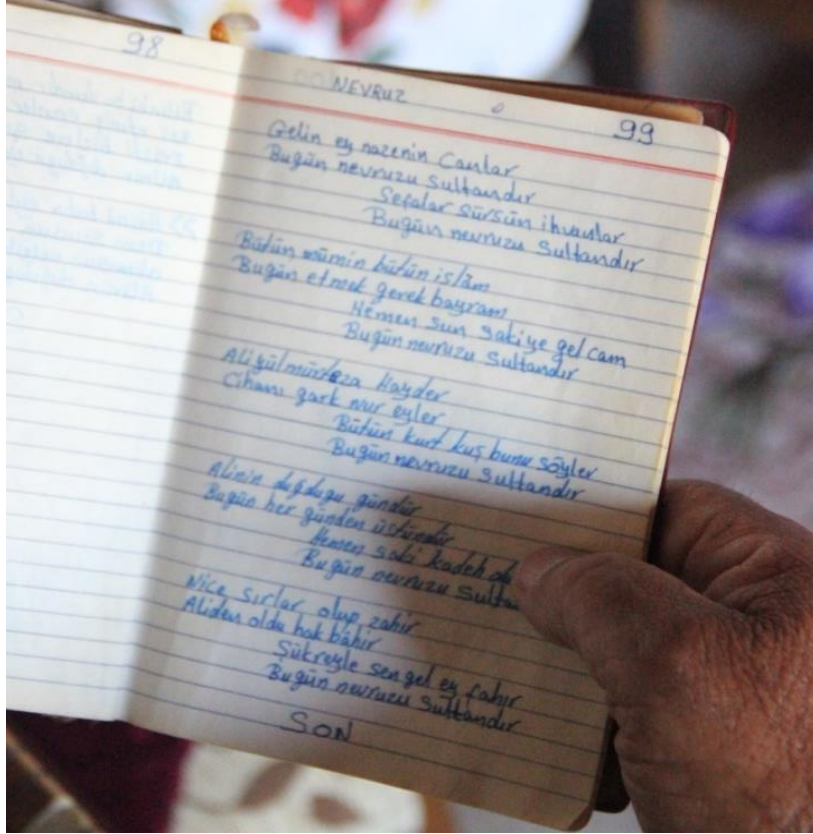 98
NEVRUZ
99
Gelin ey nazenin Canlar
Bugün nevruzu sultandır
Sefalar sürsün ihvanlar
Bugün nevruzu sultandır
Bütün mümin bütün islâm
Bugün etmek gerek bayram
Hemen sun sakiye gel cam
Bugün nevruzu sultandır
Aliyül mürteza Hayder
Cihanı gark nur eyler
Bütün kurt kuş bunu söyler
Bugün nevruzu sultandır
Alinin doğduğu gündür
Bugün her günden üstündür
Hemen saki kadeh
Bugün nevruzu
Nice sırlar olup zahir
Aliden oldu hak bâhir
Şükreyle sen gel ey fahır
Bugün nevruzu sultandır
SON